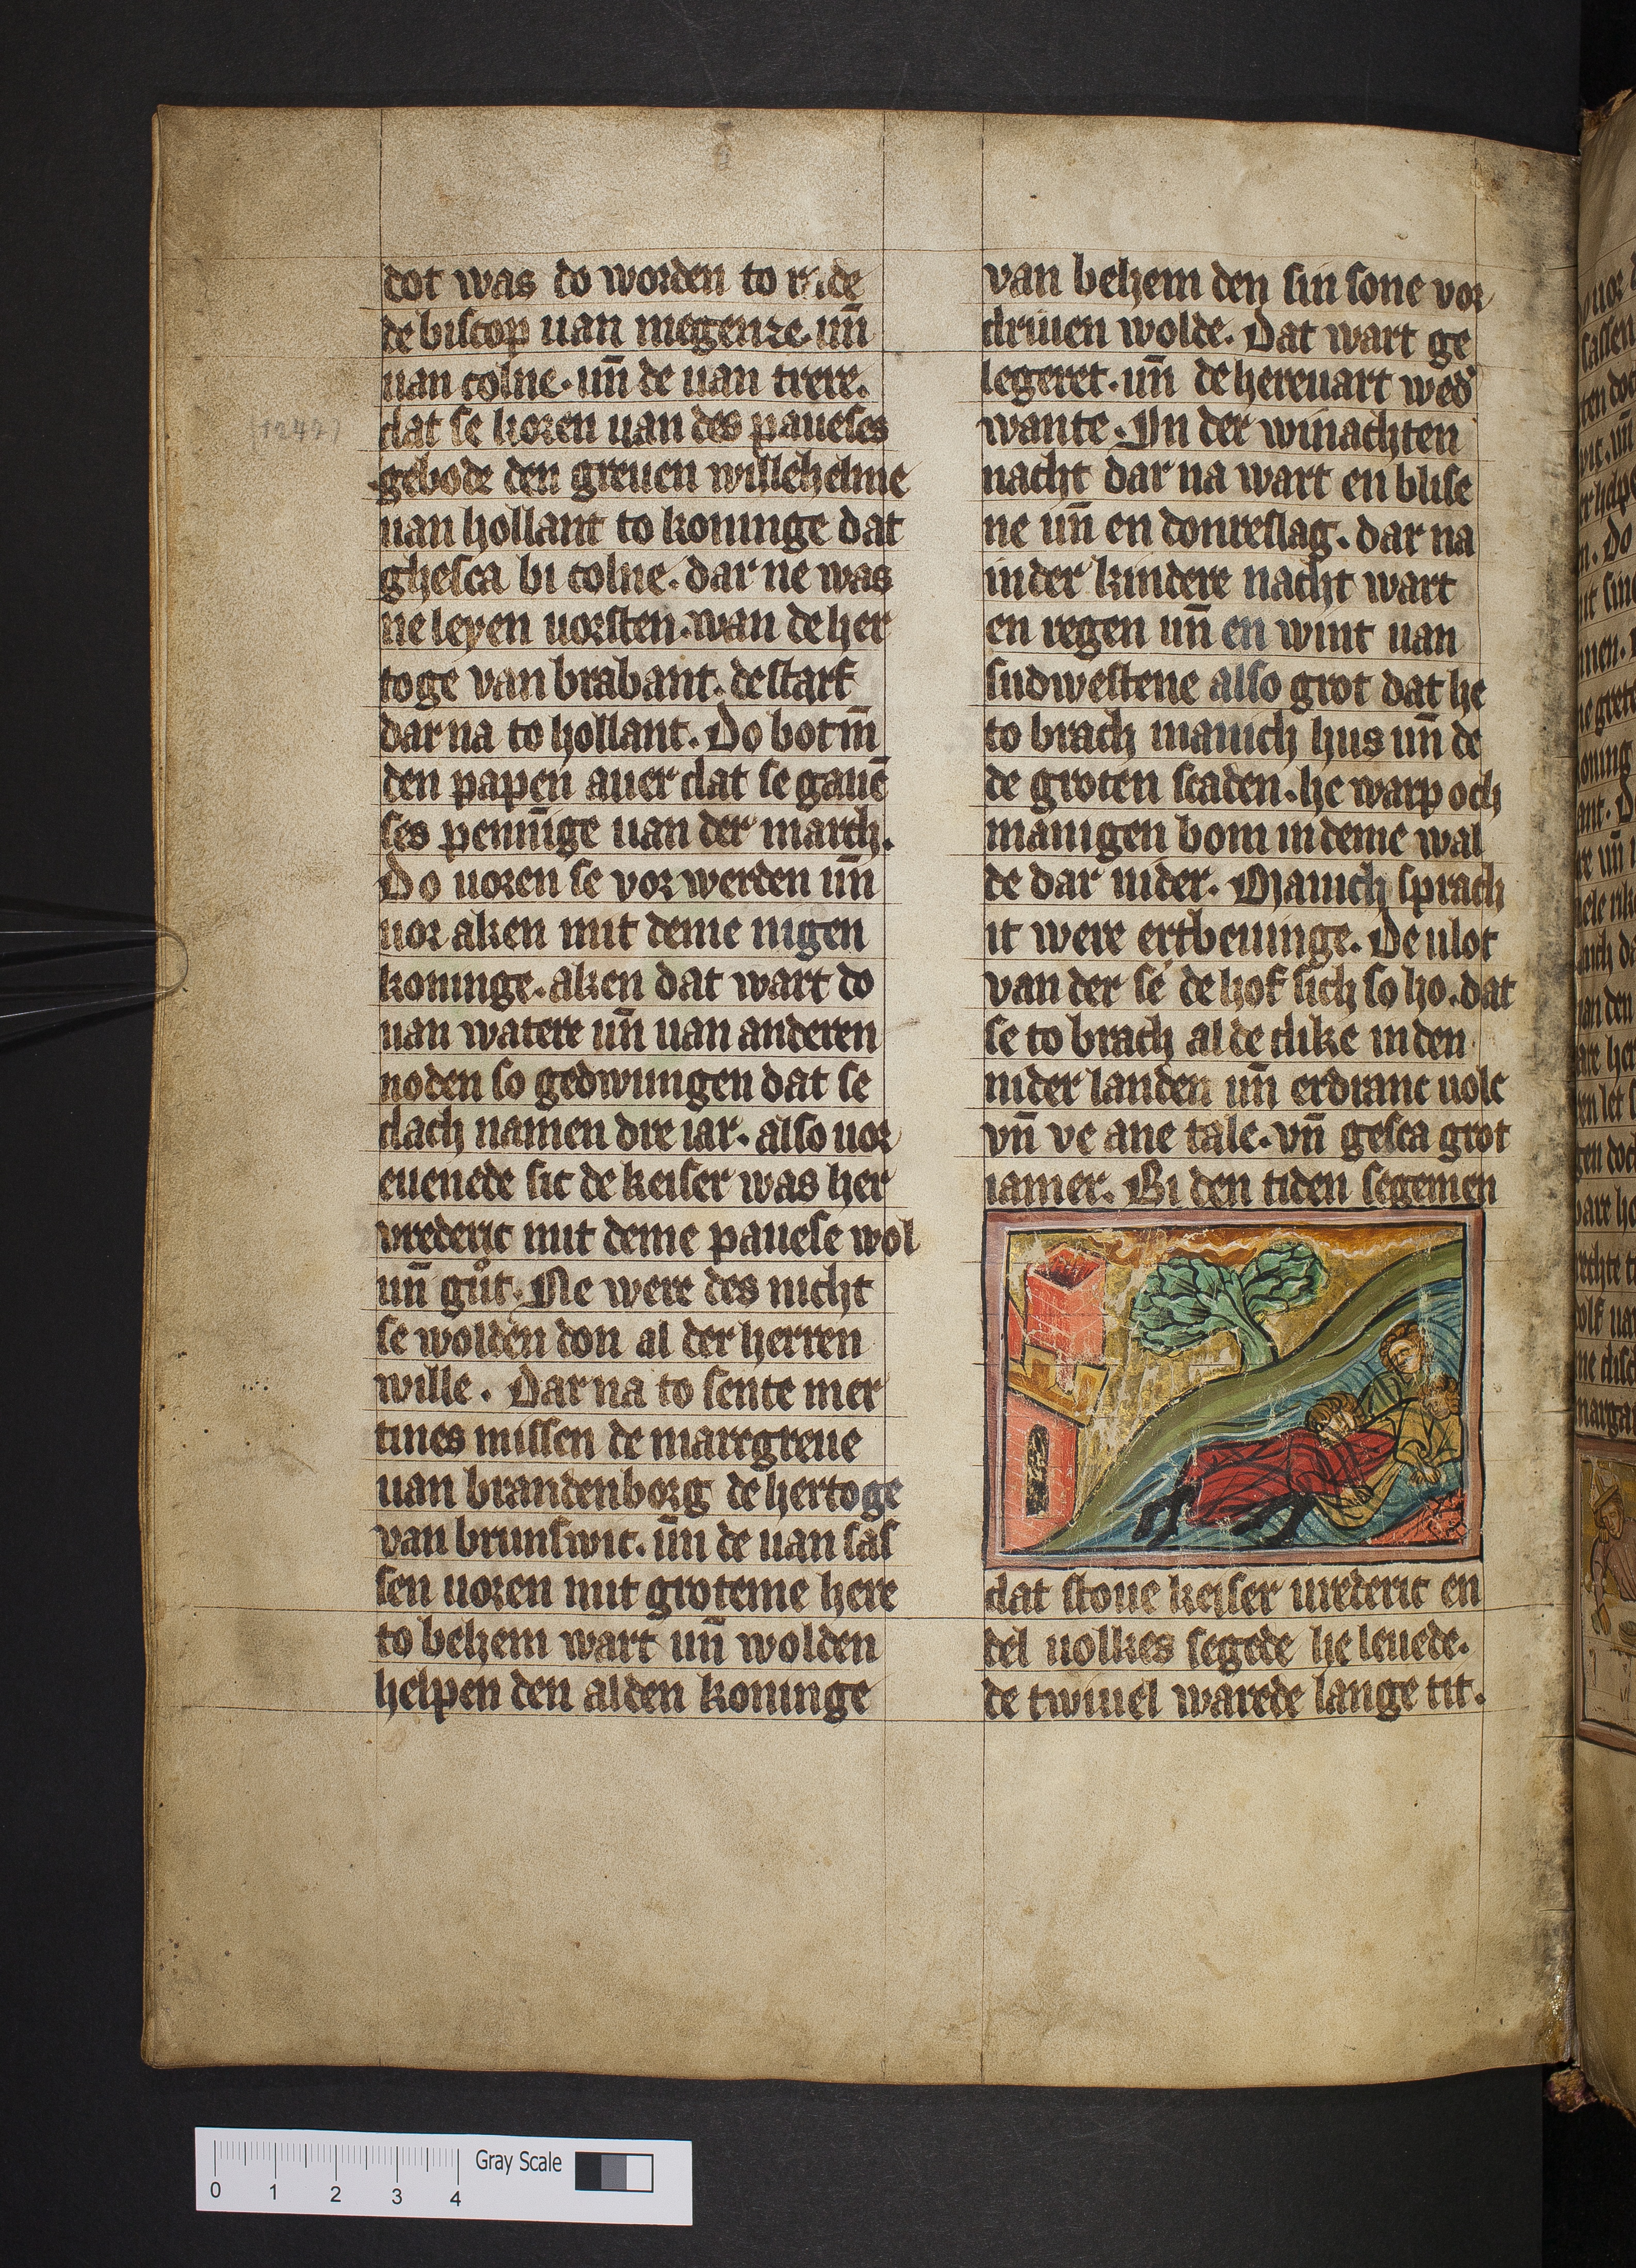 dot was do worden to rade
de biscop uan megenze. un̄
uan colne. un̄ de uan trere.
(1247)
dat se koren uan des paueses
gebode den greuen willehelme
uan hollant to koninge dat
ghesca bi colne. dar ne was
ne leyen uorsten. wan de her
toge van brabant. de starf
dar na to hollant. Do bot m̄
den papen auer dat se gauē
ses pennīge uan der march.
Do uoren se vor werden un̄
uor aken mit deme nigen
koninge. aken dat wart do
uan watere un̄ uan anderen
noden so gedwungen dat se
dach namen dre iar. also uor
euenede sic de keiser was her
vrederic mit deme pauese wol
un̄ gůt. Ne were des nicht
se wolden don al der herren
wille. Dar na to sente mer
tines missen de marcgreue
uan brandenborg de hertoge
van brunswic. un̄ de uan sas
sen uoren mit groteme here
to behem wart un̄ wolden
helpen den alden koninge
van behem den sin sone vor
driuen wolde. Dat wart ge
legeret. un̄ de hereuart wed'
wante. In der winachten
nacht dar na wart en blise
ne un̄ en donreslag. dar na
in der kindere nacht wart
en regen un̄ en wint uan
sudwestene also grot dat he
to brach manich hus un̄ de
de groten scaden. he warp och
manigen bom in deme wal
de dar nider. Manich sprach
it were ertbeuinge. De ulot
van der se de hof sich so ho. dat
se to brach al de dike in den
nider landen un̄ erdranc uolc
vn̄ ve ane tale. vn̄ gesca grot
iamer. Bi den tiden segemen
dat stoue keiser urederic en
del uolkes segede he leuede.
de twiuel warede lange tit.
Gray Scale
0 1 2 3 4